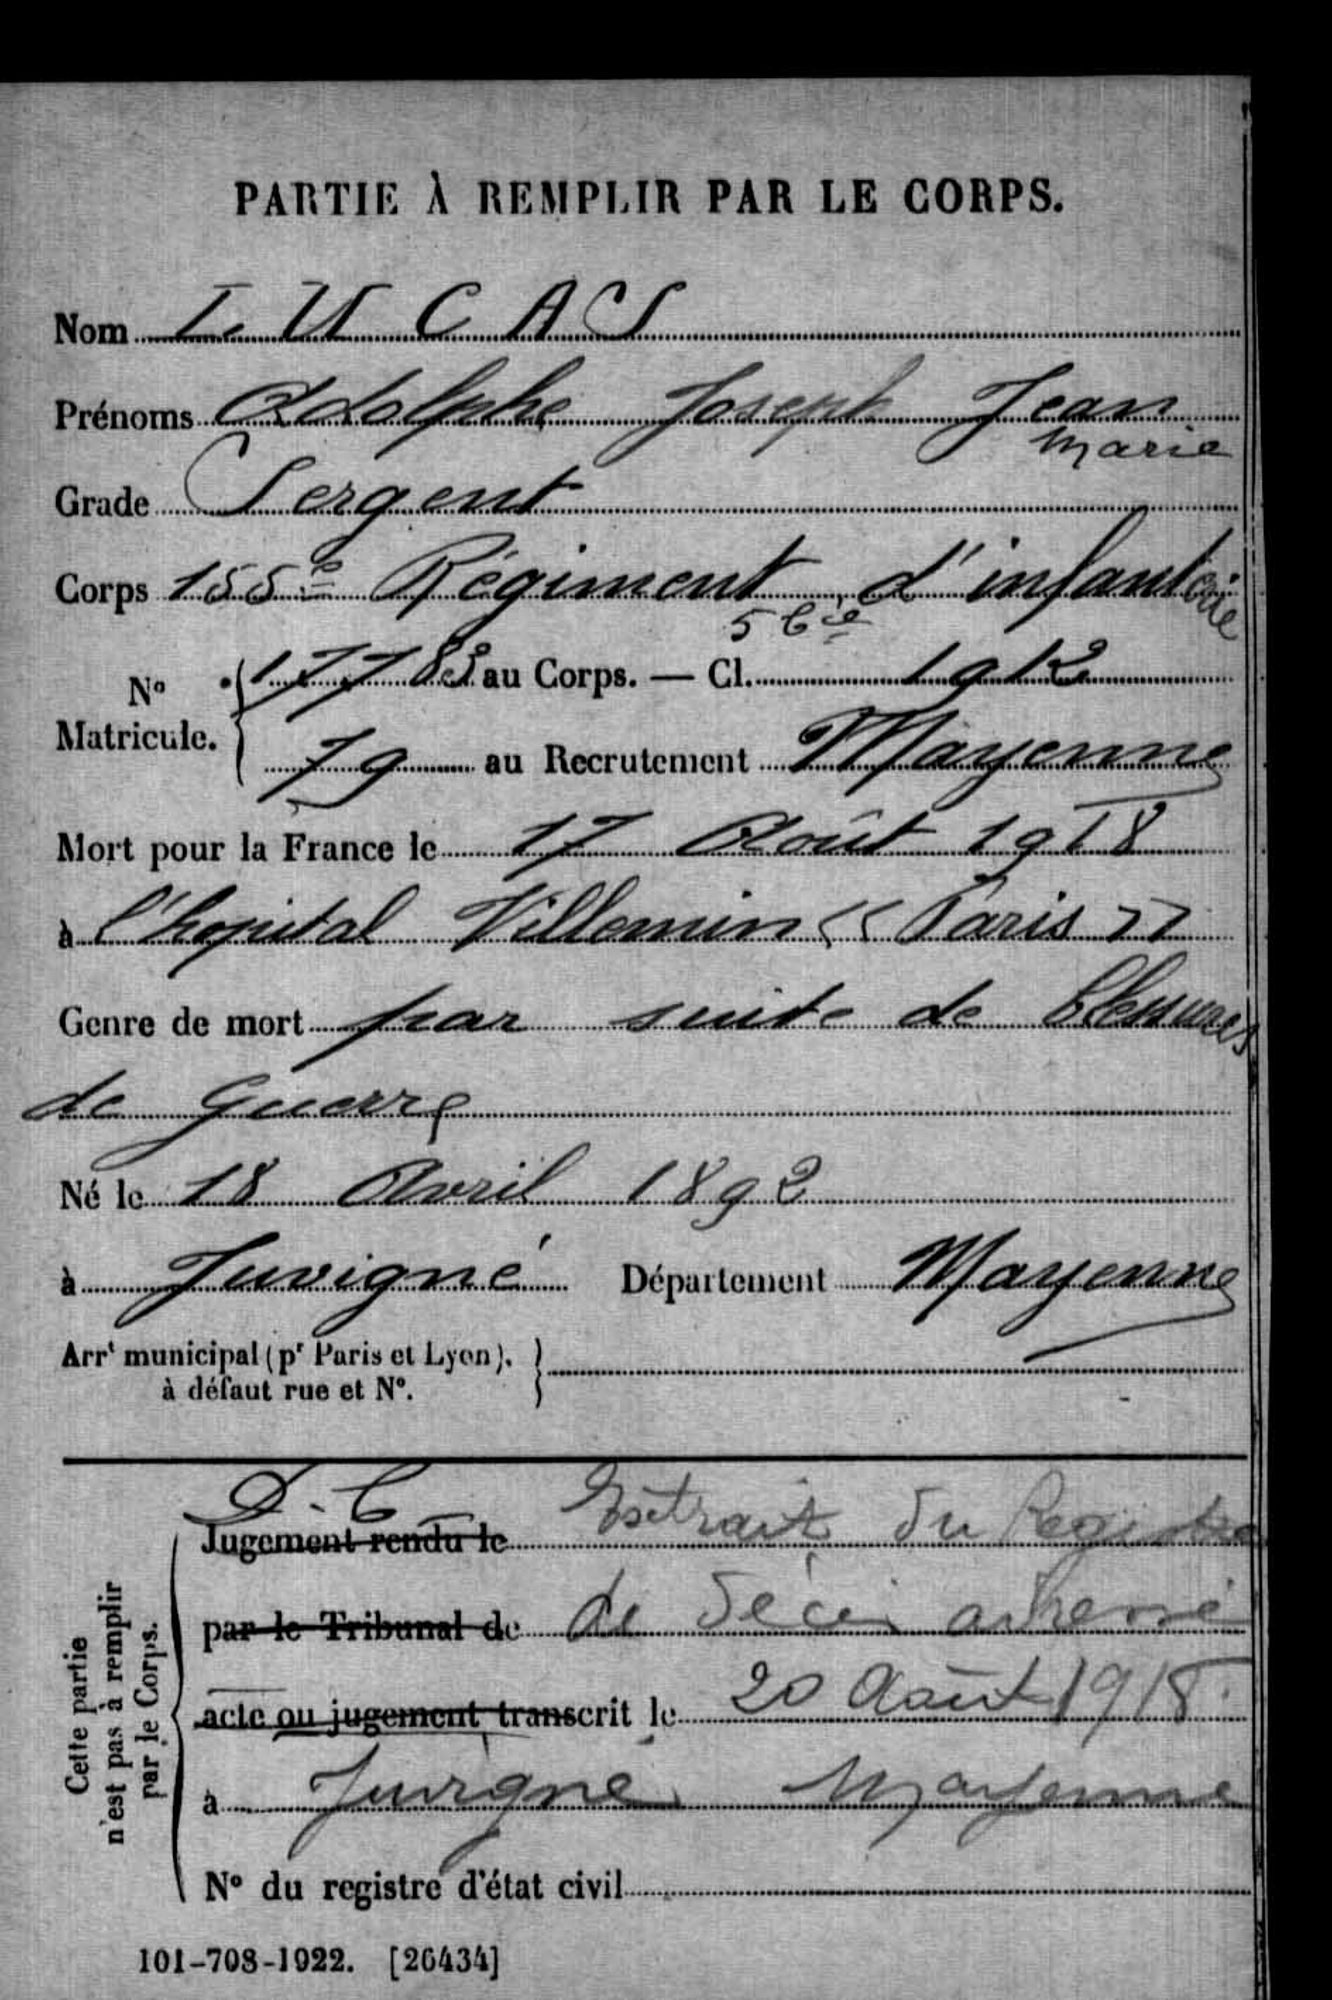 PARTIE À REMPLIR PAR LE CORPS.
Nom LUCAS
Prénoms Adolphe Joseph Jean
Marie
Grade Sergent
Corps 155e Régiment d'infanterie
5 Cie
No 17783 au Corps. — Cl. 1912
Matricule.
79 au Recrutement Mayenne
Mort pour la France le 17 Août 1918
à l'hopital Villemin << Paris >>
Genre de mort par suite de blessures
de Guerre
Né le 18 Avril 1892
à Juvigné Département Mayenne
Arrt municipal (pr Paris et Lyon).
à défaut rue et No.
D.C Extrait du Registre
Jugement rendu le
par le Tribunal de de décès adressé
acte ou jugement transcrit le 20 Août 1918
à Juvigné Mayenne
No du registre d'état civil
Cette partie
n'est pas à remplir
par le Corps.
101-708-1922. [26434]